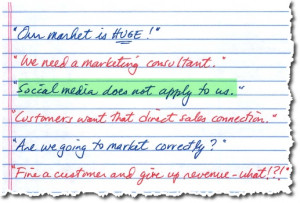 "Our market is HUGE!"
"We need a marketing consultant."
"Social media does not apply to us."
"Customers want that direct sales connection."
"Are we going to market correctly?"
"Fire a customer and give up revenue - what!?!"